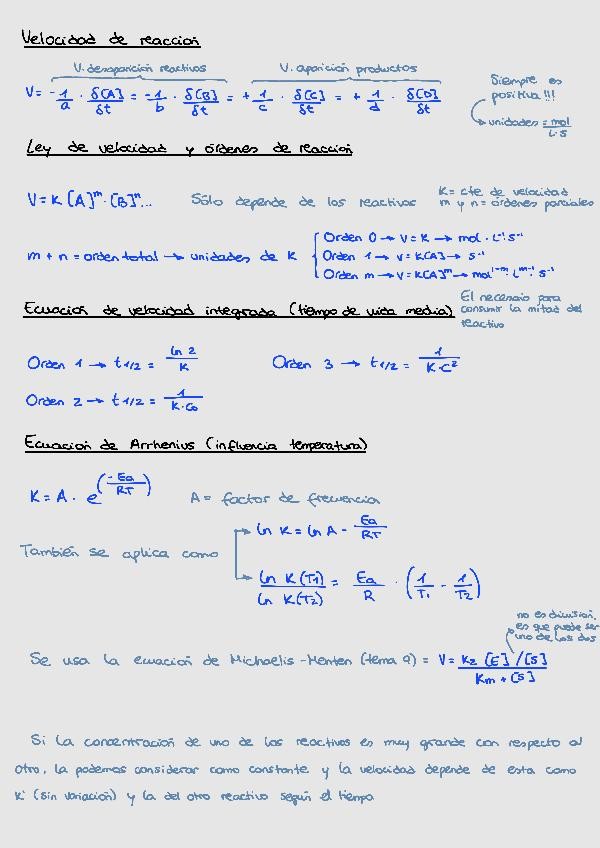 Velocidad de reacción
V. desaparición reactivos V. aparición productos
V= -1/a · δ[A]/δt = -1/b · δ[B]/δt = +1/c · δ[C]/δt = +1/d · δ[D]/δt
Siempre es
positiva!!!
unidades = mol/L·s
Ley de velocidad y órdenes de reacción
V= K [A]^m · [B]^n... Sólo depende de los reactivos
K= cte de velocidad
m y n = órdenes parciales
m + n = orden total → unidades de K
Orden 0 → V= K → mol · L⁻¹ s⁻¹
Orden 1 → v= K[A] → s⁻¹
Orden m → v= K[A]^m → mol^1-m · L^m-1 · s⁻¹
Ecuación de velocidad integrada (tiempo de vida media)
El necesario para
consumir la mitad del
reactivo
Orden 1 → t1/2 = ln 2/K Orden 3 → t1/2 = 1/K·C²
Orden 2 → t1/2 = 1/K·C₀
Ecuación de Arrhenius (influencia temperatura)
K= A · e^(-Ea/RT) A = factor de frecuencia
También se aplica como
ln K = ln A - Ea/RT
ln K(T1)/ln K(T2) = Ea/R · (1/T₁ - 1/T₂)
no es división,
es que puede ser
uno de los dos
Se usa la ecuación de Michaelis-Menten (tema 9) = V= K₂ [E] / [S]/Km + [S]
Si la concentración de uno de los reactivos es muy grande con respecto al
otro, la podemos considerar como constante y la velocidad depende de esta como
K' (sin variación) y la del otro reactivo según el tiempo